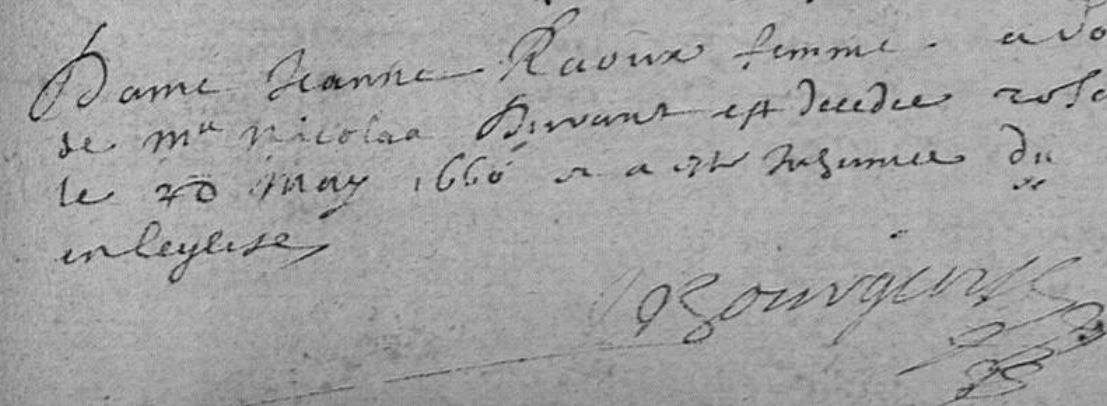 Dame Jeanne Raoux femme
de Mre Nicolas Durant est decedee
le 20 May 1660 et a esté Inhumee
en leglise
Bourgeois